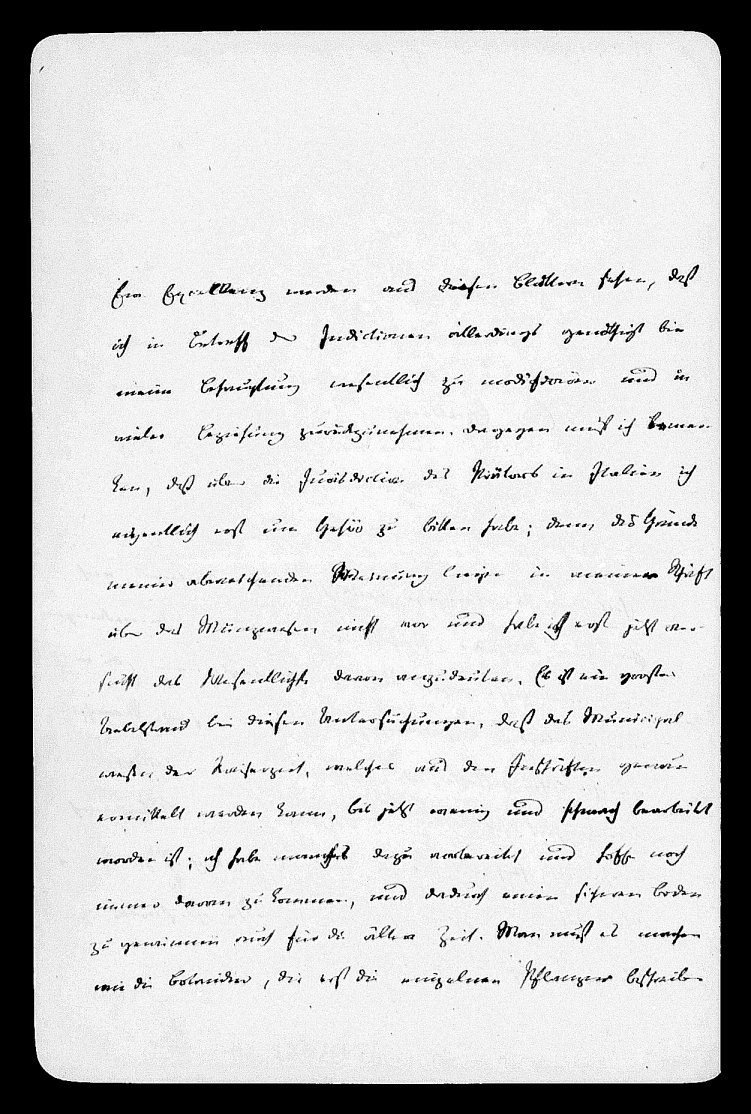 Eure Excellenz werden aus diesen Blättern sehen, daß
ich in Betreff der Indictionen allerdings genöthigt bin
meine Behauptung wesentlich zu modificiren und in
vieler Beziehung zurückzunehmen. Dagegen muß ich bemer-
ken, daß über die Jurisdiction des Prätors in Italien ich
eigentlich erst um Gehör zu bitten habe; denn die Gründe
meiner abweichenden Meinung liegen in meiner Schrift
über das Münzwesen nicht vor und habe ich erst jetzt ver-
sucht das Wesentlichste davon anzudeuten. Es ist ein großer
Uebelstand bei diesen Untersuchungen, daß das Municipal-
wesen der Kaiserzeit, welches aus den Inschriften genau
ermittelt werden kann, bis jetzt wenig und schwach bearbeitet
worden ist; ich habe manches dazu vorbereitet und hoffe noch
immer daran zu kommen, und dadurch einen sicheren Boden
zu gewinnen auch für die ältere Zeit. Man muß es machen
wie die Botaniker, die erst die einzelnen Pflanzen beschreiben